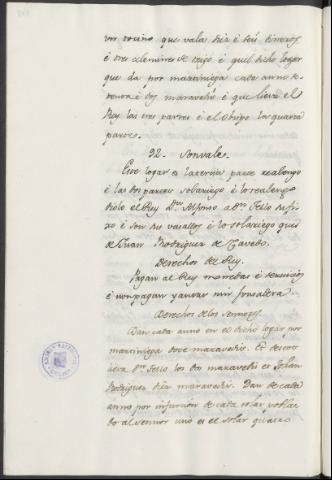 un tocino que vala diez é seis dineros
é tres celemines de trigo é quel dicho logar
que da por martiniega cada anno no-
venta é dos maravedis é que lieva el
Rey las tres partes é el Obispo la quarta
parte.
92. Sonvale.
Este logar es la tercia parte realengo
é las dos partes solariego é lo realengo
diólo el Rey Dn. Alfonso a Dn. Tello su fi-
xo é son sus vasallos é lo solariego que es
de Juan Rodriguez de
Derechos del Rey.
Pagan al Rey monedas é servicios
é non pagan yantar nin fonsadera
Derechos de los Sennores.
Dan cada anno en el dicho logar por
martiniega doce maravedis. Et destos
lieva Dn. Tello los dos maravedis et Johan
Rodriguez diez maravedis. Dan de cada
anno por infurcion de cada solar pobla-
do al sennor uno es el solar quatro